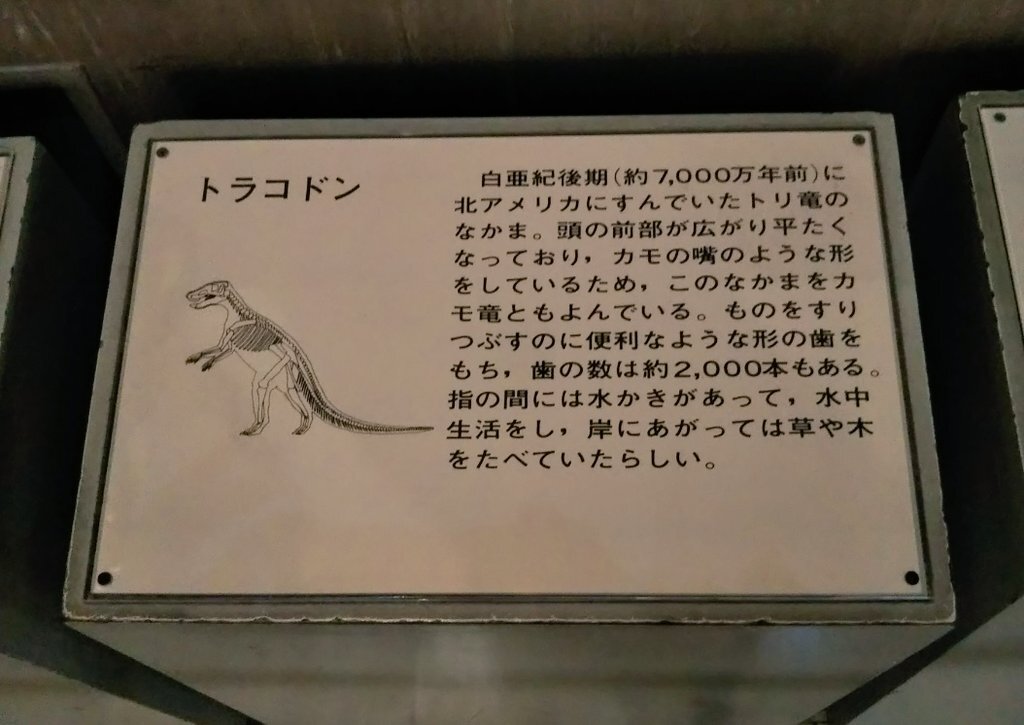 トラコドン
白亜紀後期(約7,000万年前)に
北アメリカにすんでいたトリ竜の
なかま。頭の前部が広がり平たく
なっており，カモの嘴のような形
をしているため，このなかまをカ
モ竜ともよんでいる。ものをすり
つぶすのに便利なような形の歯を
もち，歯の数は約2,000本もある。
指の間には水かきがあって，水中
生活をし，岸にあがっては草や木
をたべていたらしい。